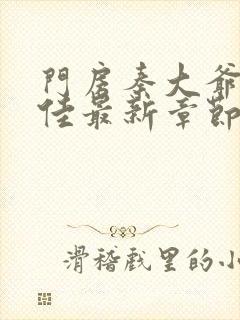 門房秦大爺
佳最新章節
滑稽戲里的小